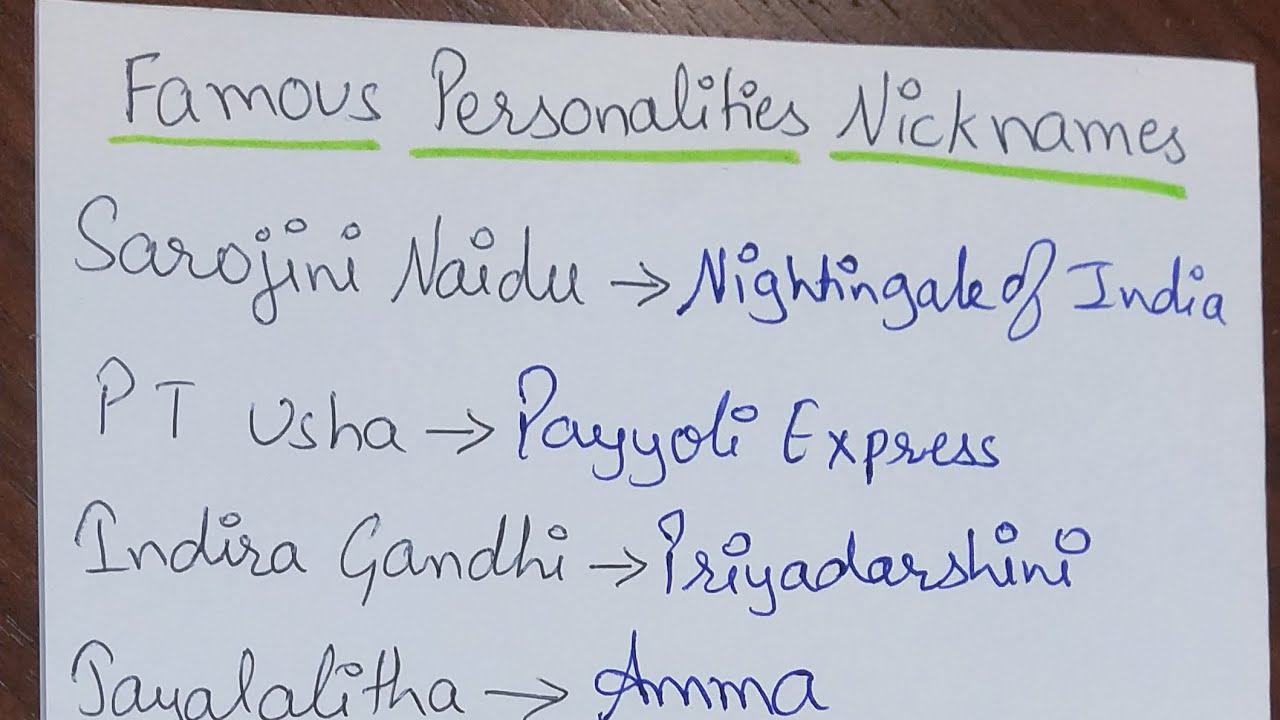 Famous Personalities Nicknames
Sarojini Naidu → Nightingale of India
PT Usha → Payyoli Express
Indira Gandhi → Priyadarshini
Jayalalitha → Amma